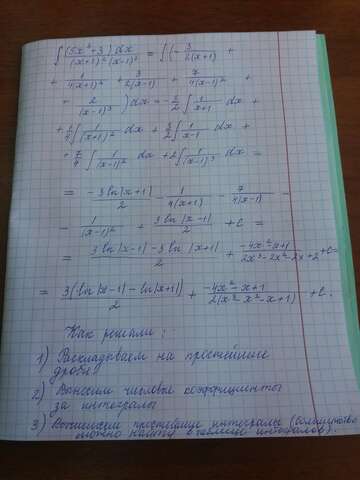 ∫ (5x²+3)dx / (x+1)²(x-1)³ = ∫(- 3/2(x+1) +
+ 1/4(x+1)² + 3/2(x-1) + 7/4(x-1)² +
+ 2/(x-1)³ )dx = -3/2 ∫ 1/x+1 dx +
+ 1/4 ∫ 1/(x+1)² dx + 3/2 ∫ 1/x-1 dx +
+ 7/4 ∫ 1/(x-1)² dx + 2∫ 1/(x-1)³ dx =
= -3ln|x+1|/2 - 1/4(x+1) - 7/4(x-1) -
- 1/(x-1)² + 3ln|x-1|/2 + C =
= 3ln|x-1|-3ln|x+1|/2 + -4x²-x+1/2x³-2x²-2x+2 + C =
= 3(ln|x-1|-ln|x+1|)/2 + -4x²-x+1/2(x³-x²-x+1) + C.
Как решали:
1) Раскладываем на простейшие
дроби
2) Выносим числовые коэффициенты
за интегралы
3) Вычисляем простейшие интегралы (большинство
можно найти в таблице интегралов).